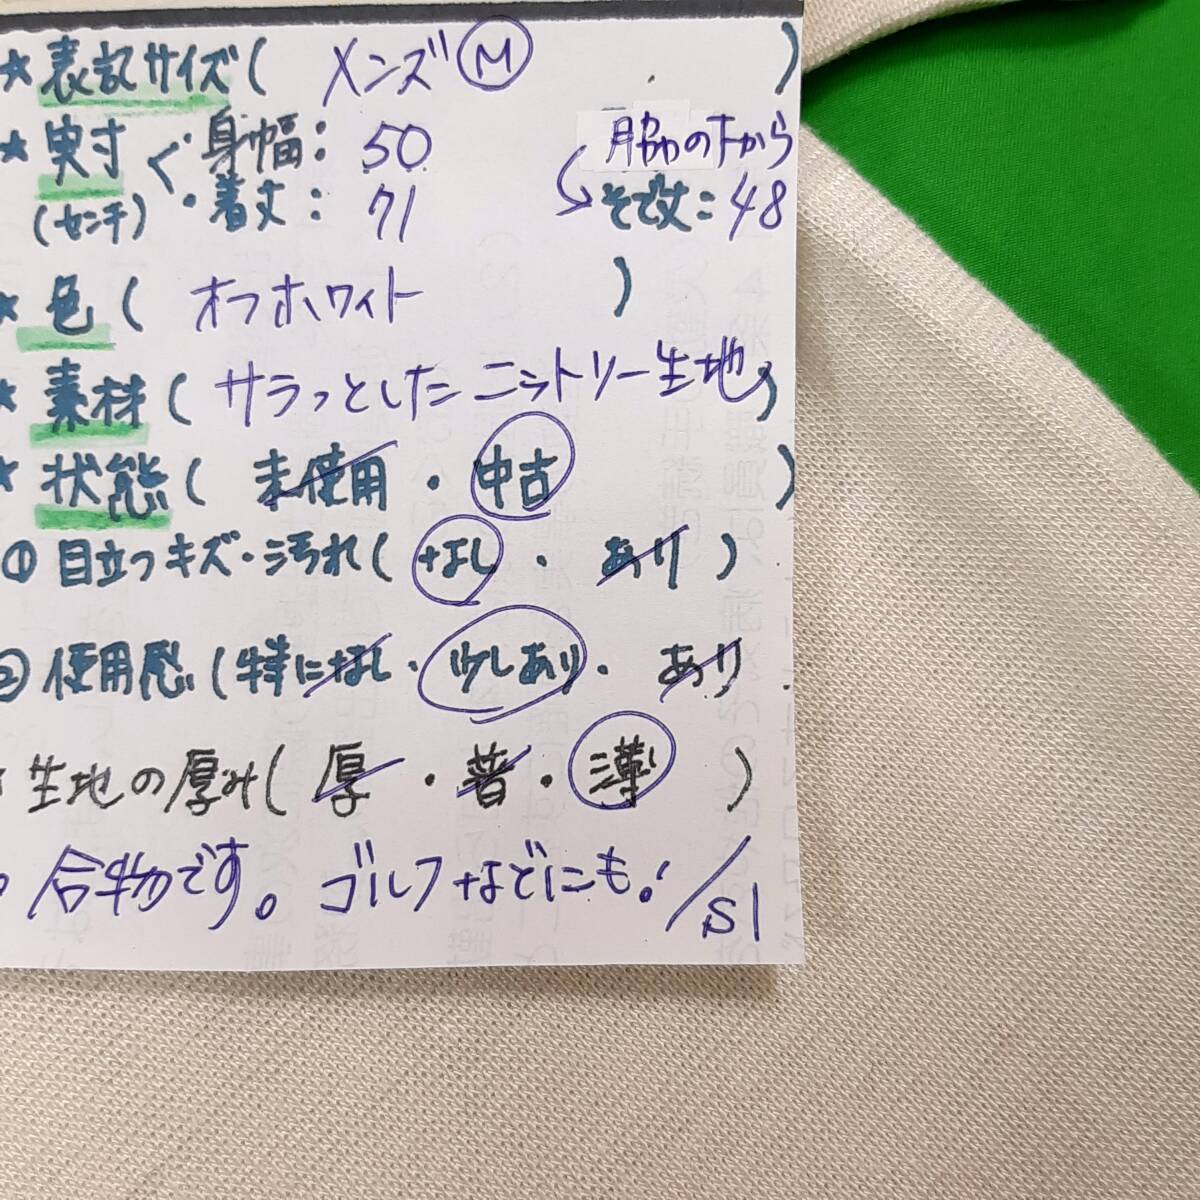 ★表記サイズ( メンズ Ⓜ )
★実寸 く・身幅: 50 脇の下から
(センチ)・着丈: 71 そで丈: 48
★色( オフホワイト )
★素材( サラっとしたニットソー生地 )
★状態( 未使用・中古 )
①目立つキズ・汚れ( なし・あり )
②使用感(特になし・少しあり・あり
★生地の厚み( 厚・普・薄 )
合物です。ゴルフなどにも! /S1